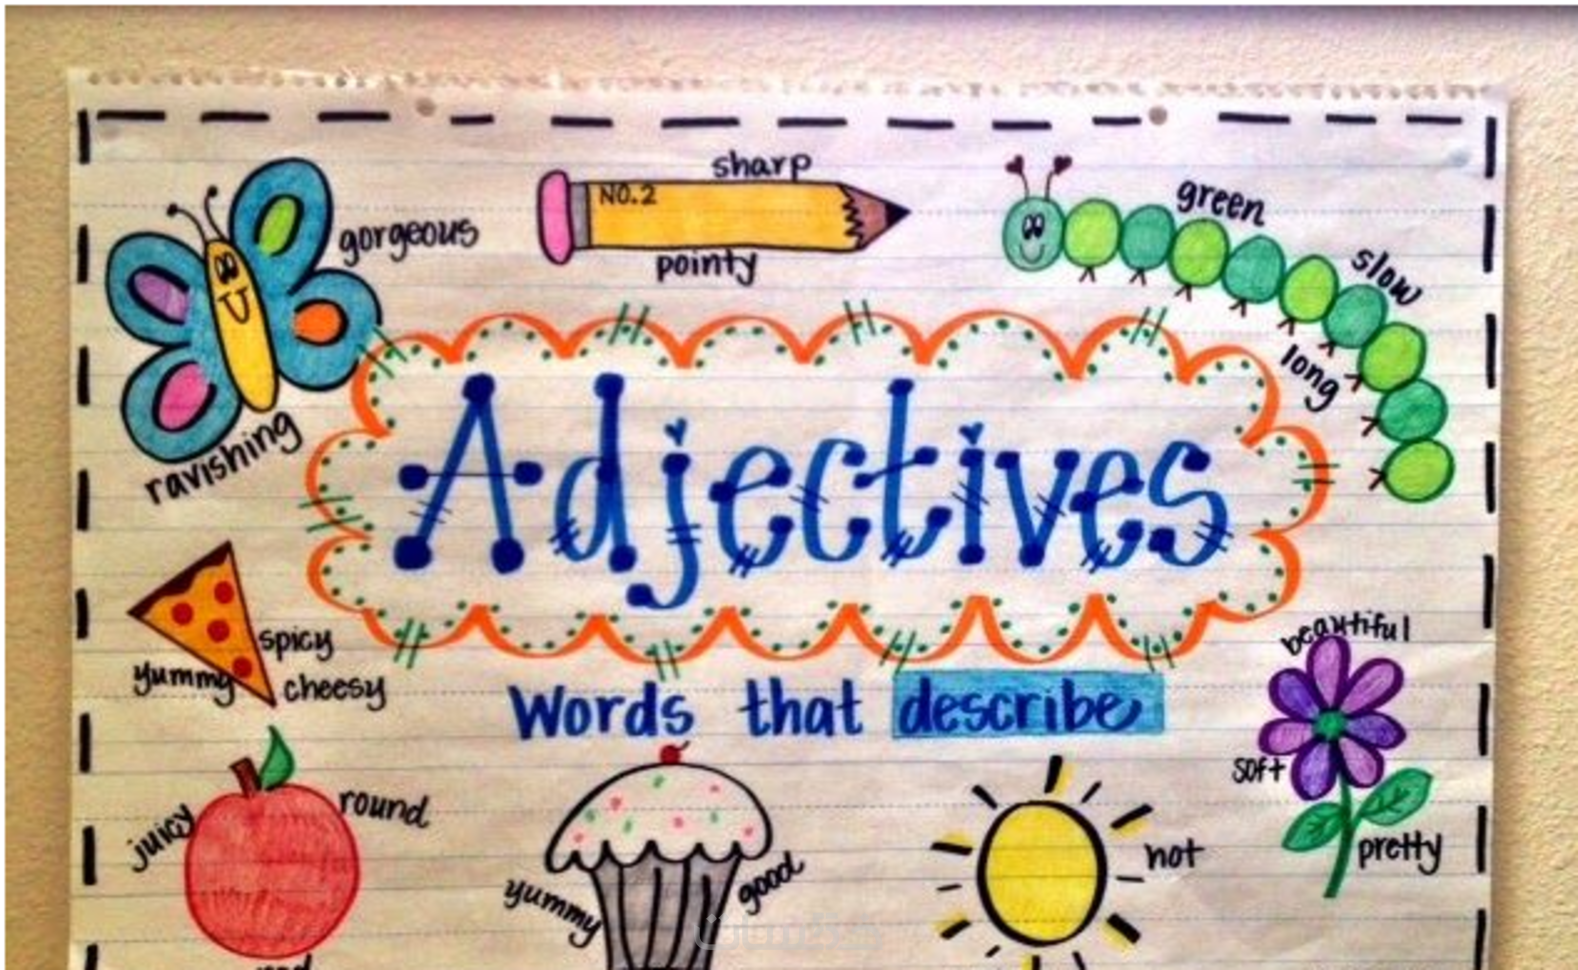 sharp
NO.2
green
gorgeous
pointy
slow
long
Adjectives
ravishing
spicy
yummy
cheesy
beautiful
Words that describe
soft
juicy
round
hot
pretty
yummy
good